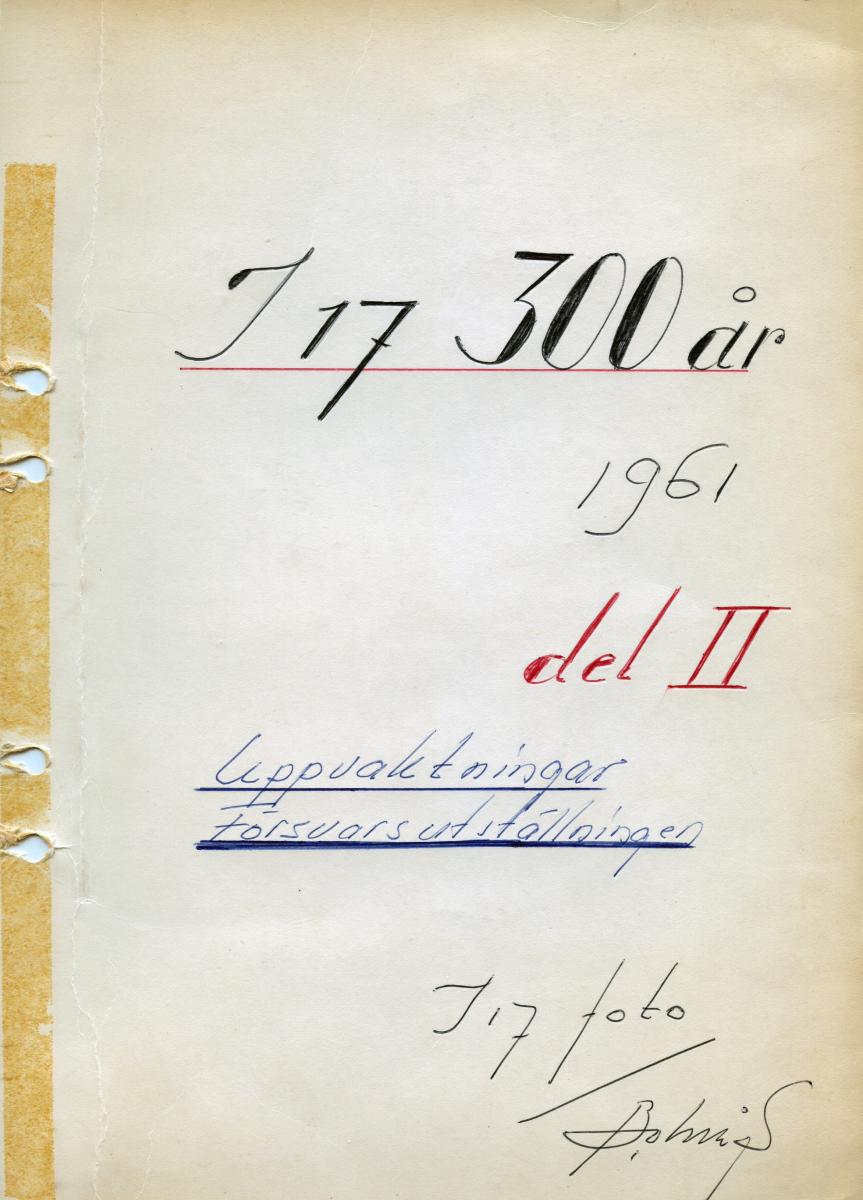 I 17 300 år
1961
del II
Uppvaktningar
Försvarsutställningen
I 17 foto